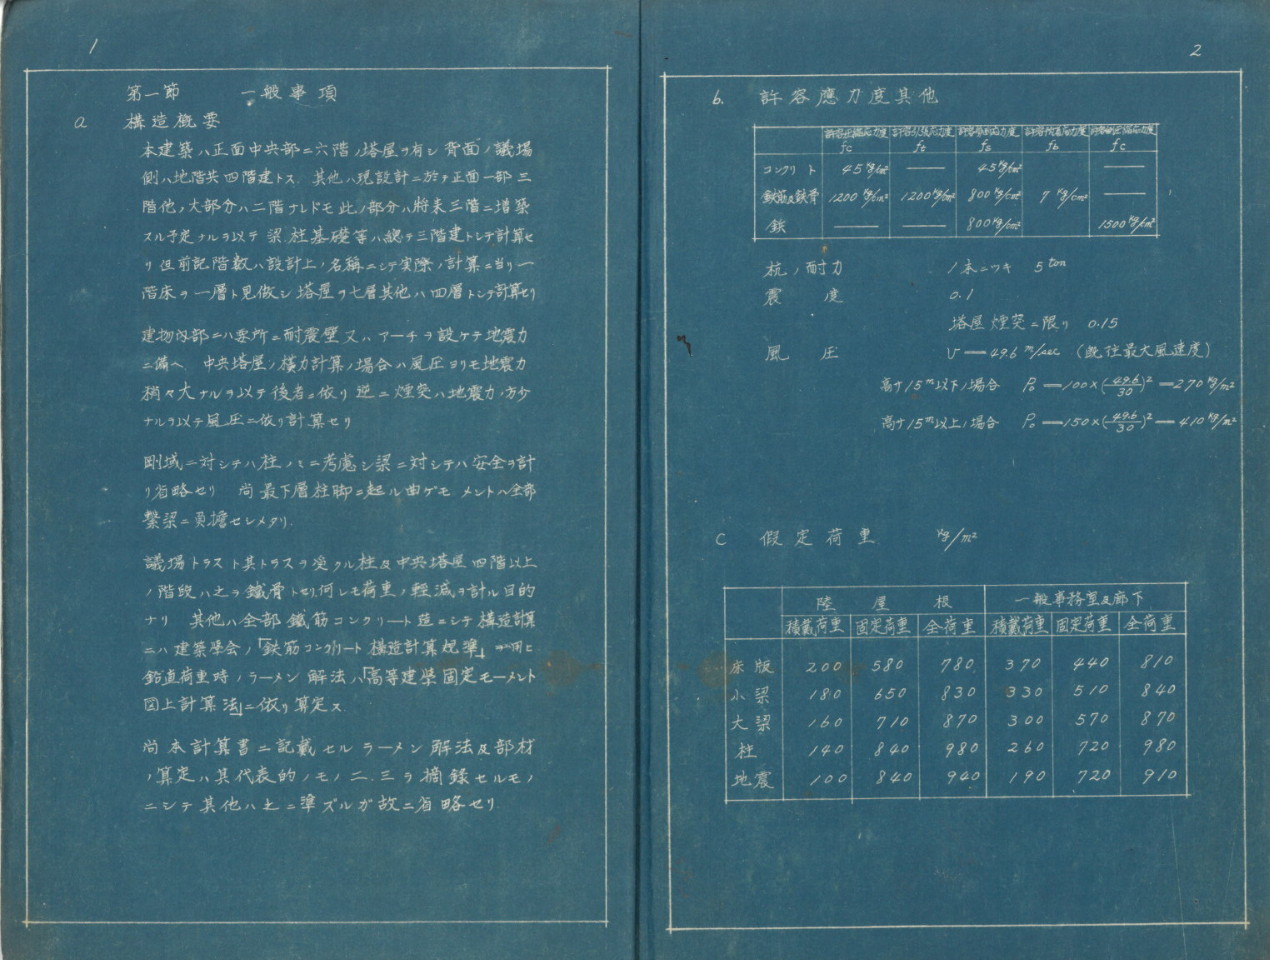 1
第一節 一般事項
a 構造概要
本建築ハ正面中央部ニ六階ノ塔屋ヲ有シ背面ノ議場
側ハ地階共四階建トス 其他ハ現設計ニ於テ正面一部三
階他ノ大部分ハ二階ナレドモ此ノ部分ハ將来三階ニ増築
スル予定ナルヲ以テ 梁柱基礎等ハ總テ三階建トシテ計算セ
リ但前記階数ハ設計上ノ名稱ニシテ実際ノ計算ニ当リ一
階床ヲ一層ト見做シ 塔屋ヲ七層其他ハ四層トシテ計算セリ
建物内部ニハ要所ニ耐震壁又ハアーチヲ設ケテ地震力
ニ備ヘ 中央塔屋ノ横力計算ノ場合ハ風圧ヨリモ地震力
稍々大ナルヲ以テ後者ニ依リ逆ニ煙突ハ地震力ノ方少
ナルヲ以テ風圧ニ依リ計算セリ
剛域ニ対シテハ柱ノミニ考慮シ梁ニ対シテハ安全ヲ計
リ省略セリ 尚最下層柱脚ニ起ル曲ゲモーメントハ全部
繋梁ニ負擔セシメタリ.
議場トラスト其トラスヲ受クル柱及中央塔屋四階以上
ノ階段ハ之ヲ鐵骨トセリ何レモ荷重ノ輕減ヲ計ル目的
ナリ 其他ハ全部鐵筋コンクリート造ニシテ構造計算
ニハ建築學会ノ「鉄筋コンクリート構造計算規準」ヲ用ヒ
鉛直荷重時ノラーメン解法ハ「高等建築固定モーメント
図上計算法」ニ依リ算定ス
尚本計算書ニ記載セルラーメン解法及部材
ノ算定ハ其代表的ノモノ二.三ヲ摘録セルモノ
ニシテ其他ハ之ニ準ズルガ故ニ省略セリ.
2
b. 許容應力度其他
許容圧縮応力度 許容引張応力度 許容剪断応力度 許容付着応力度
fc ft fs fb fc
コンクリート 45 kg/cm² —— 45 kg/cm² ——
鉄筋及鉄骨 1200 kg/cm² 1200 kg/cm² 800 kg/cm² 7 kg/cm² ——
鋲 —— —— 800 kg/cm² 1500 kg/cm²
杭ノ耐力 1本ニツキ 5 ton
震度 0.1
塔屋煙突ニ限リ 0.15
風圧 V — 49.6 m/sec (既往最大風速度)
高サ15m以下ノ場合 P₀ — 100×(49.6/30)² — 270 kg/m²
高サ15m以上ノ場合 P₀ — 150×(49.6/30)² — 410 kg/m²
C 假定荷重 kg/m²
陸屋根 一般事務室及廊下
積載荷重 固定荷重 全荷重 積載荷重 固定荷重 全荷重
床版 200 580 780 370 440 810
小梁 180 650 830 330 510 840
大梁 160 710 870 300 570 870
柱 140 840 980 260 720 980
地震 100 840 940 190 720 910